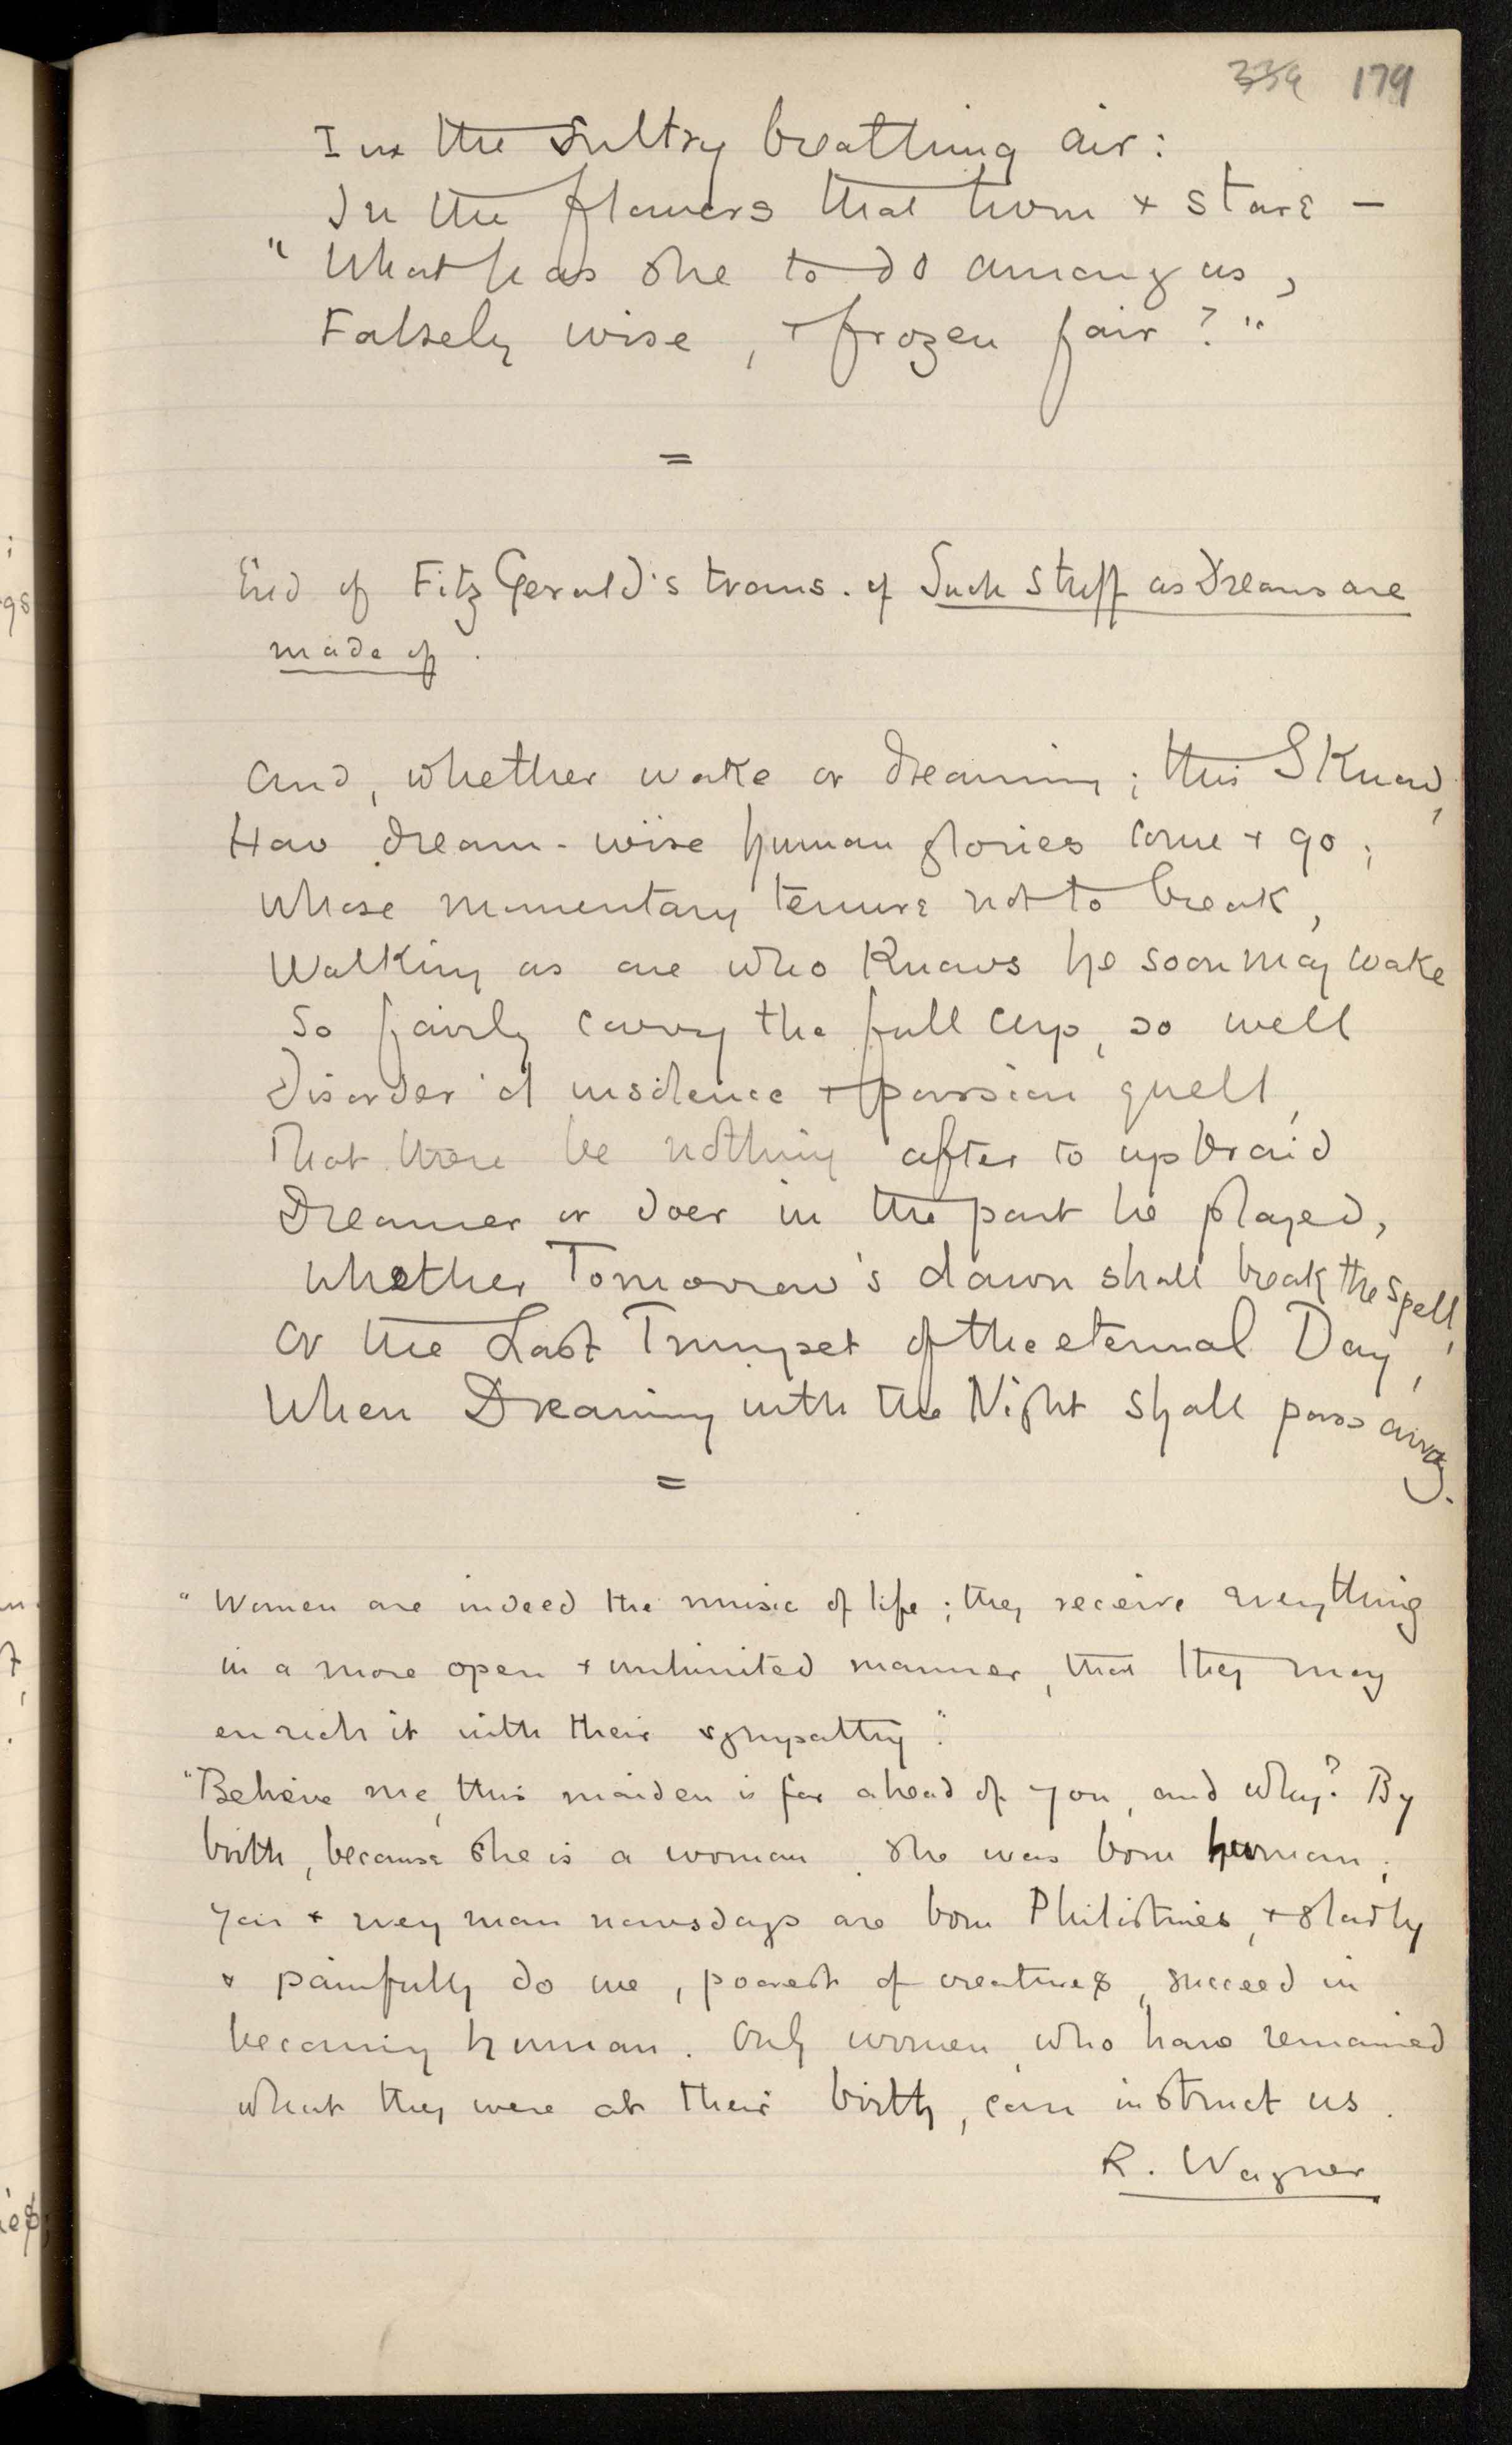 339 179
In the sultry breathing air:
In the flowers that turn + stare —
"What has she to do among us,
Falsely wise, + frozen fair?"
=
End of FitzGerald's trans. of Such Stuff as Dreams are
made of.
And, whether wake or dreaming; this I Know,
How dream-wise human glories come + go;
Whose momentary tenure not to break,
Walking as one who Knows he soon may wake
So fairly carry the full cup, so well
Disorder'd insolence + passion quell,
That there be nothing after to upbraid
Dreamer or doer in the part he played,
Whether Tomorrow's dawn shall break the spell,
Or the Last Trumpet of the eternal Day,
When Dreaming with the Night shall pass away.
=
"Women are indeed the music of life; they receive everything
in a more open + unlimited manner, that they may
enrich it with their sympathy."
"Believe me, this maiden is far ahead of you, and why? By
birth, because she is a woman. She was born human;
you + every man nowadays are born Philistines, + slowly
+ painfully do we, poorest of creatures, succeed in
becoming human. Only women, who have remained
what they were at their birth, can instruct us.
R. Wagner